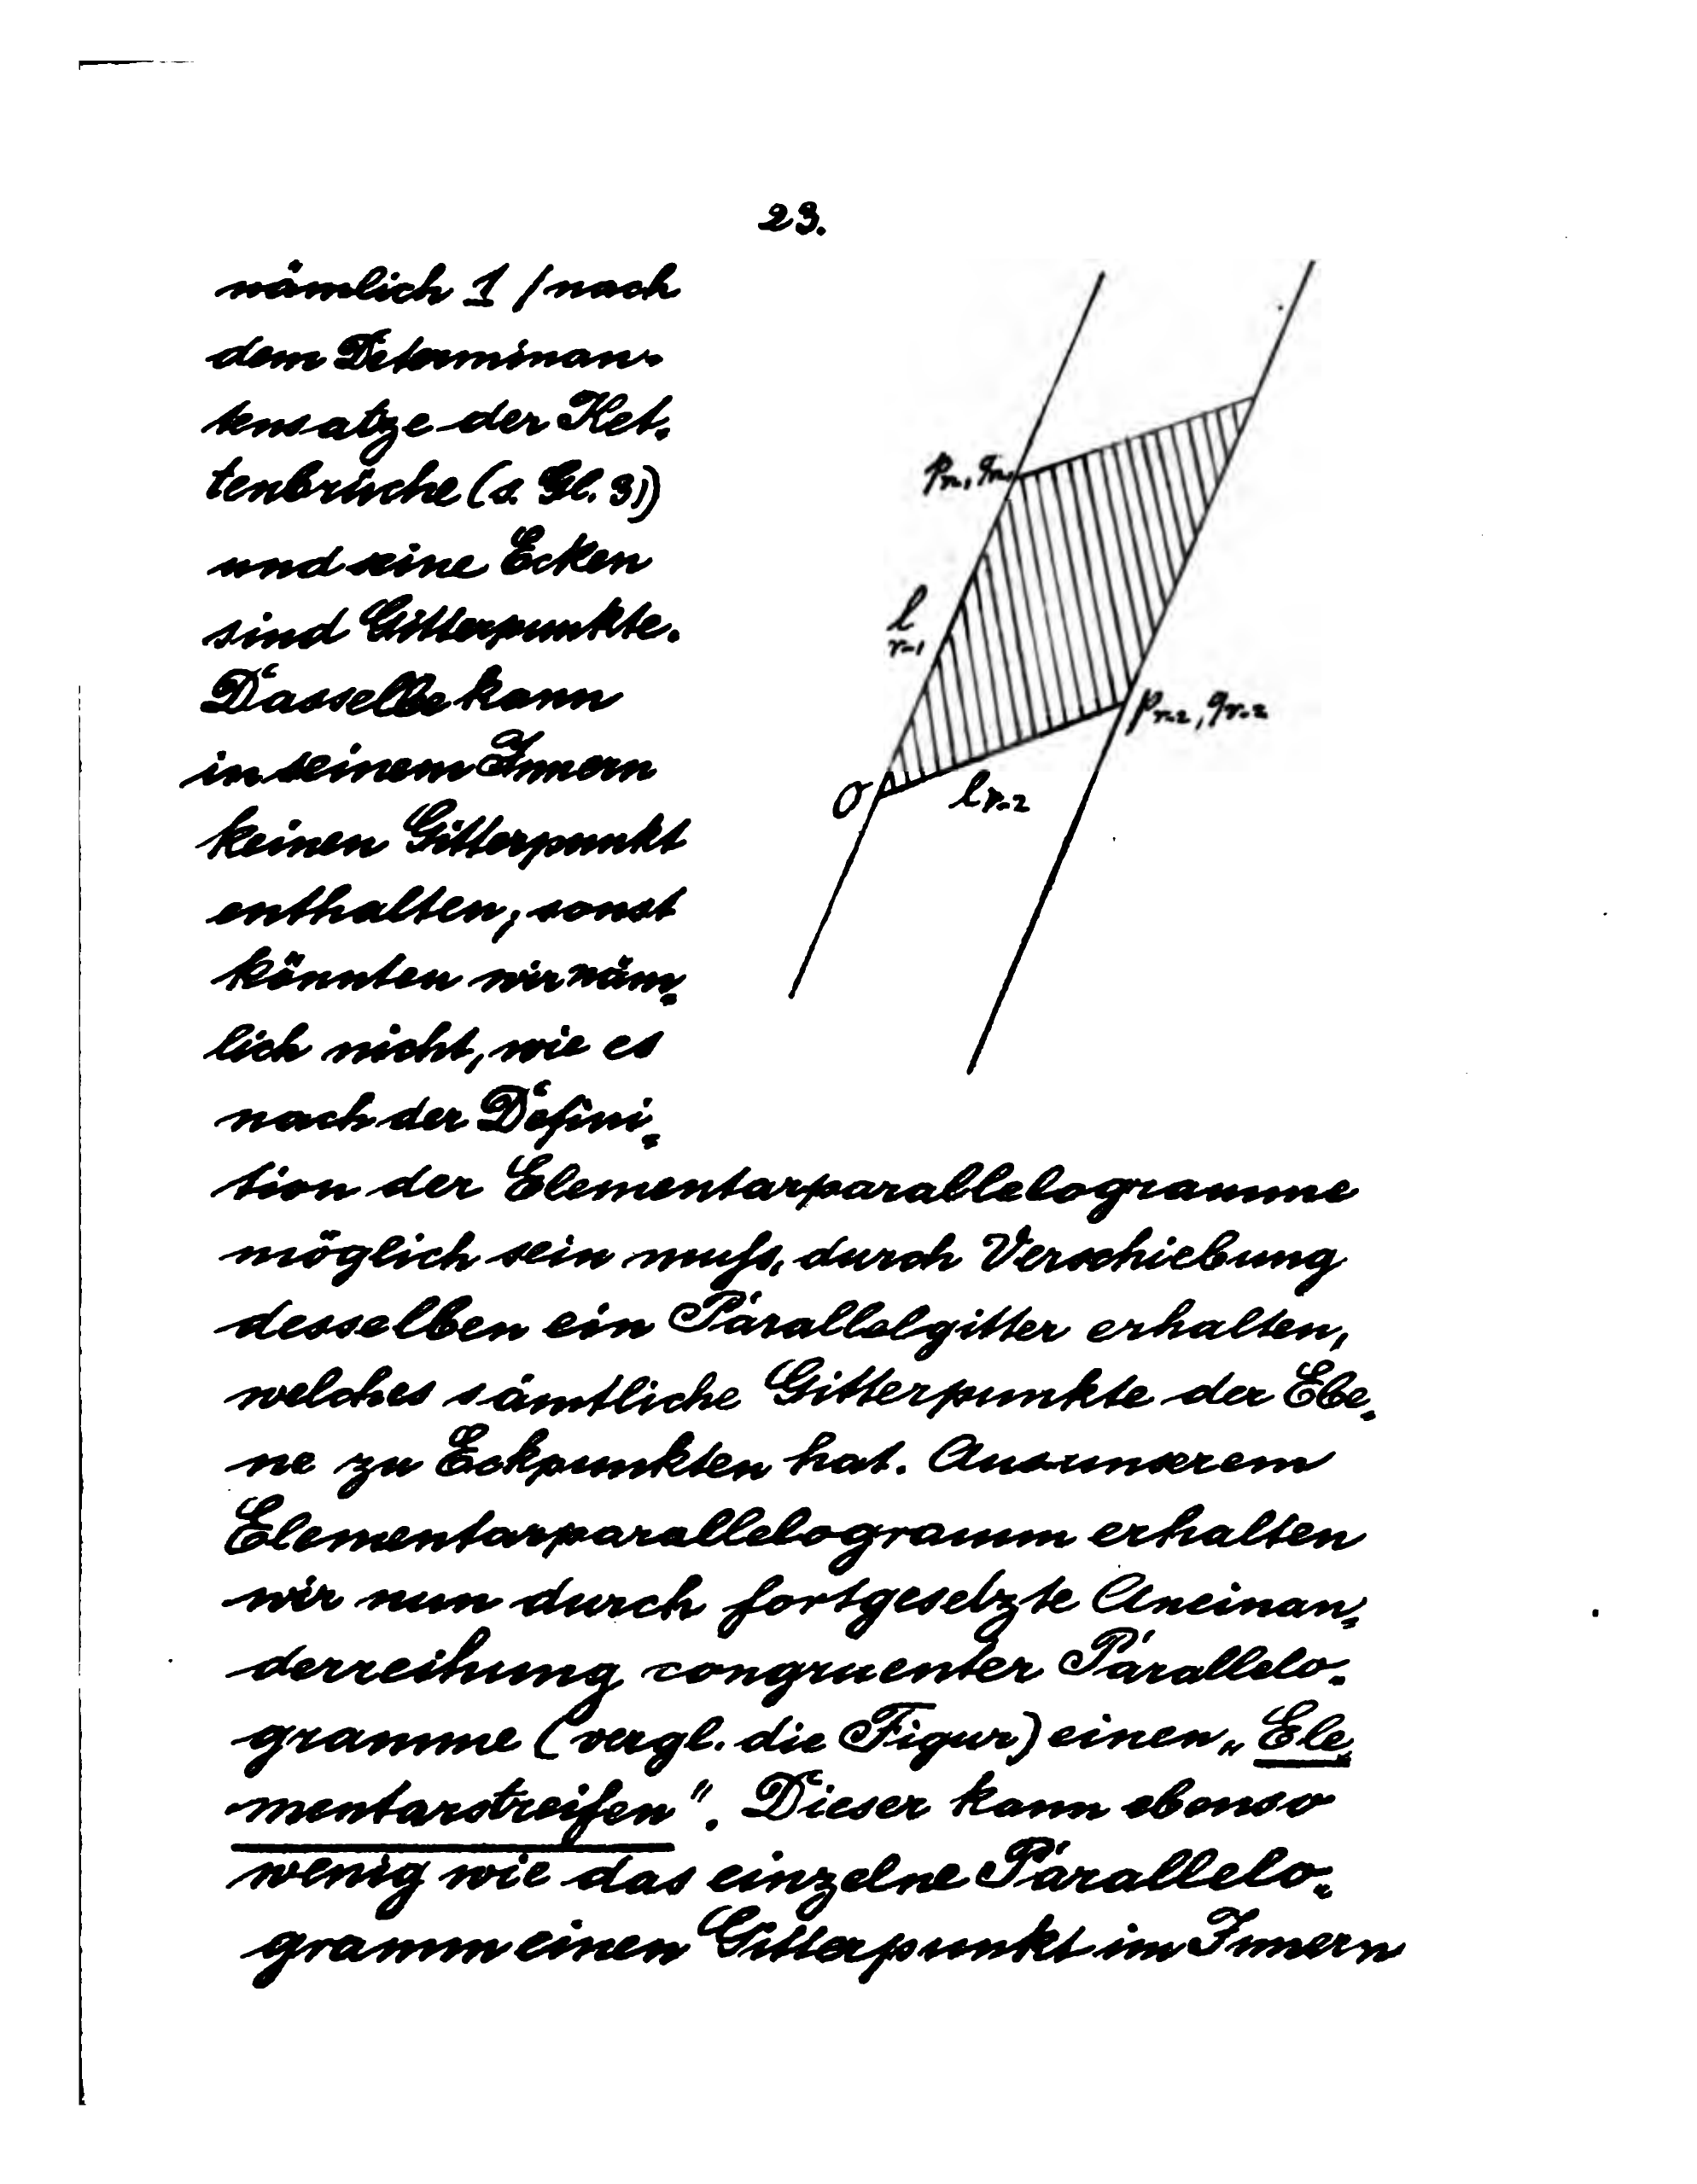 23.
nämlich 1 /nach
dem Determinan-
tensatze der Ket-
tenbrüche (s. Gl. 3))
und seine Ecken
sind Gitterpunkte.
Dasselbe kann
in seinem Innern
keinen Gitterpunkt
enthalten, sonst
könnten wir näm-
lich nicht, wie es
nach der Defini-
tion der Elementarparallelogramme
möglich sein muß, durch Verschiebung
desselben ein Parallelgitter erhalten,
welches sämtliche Gitterpunkte der Ebe-
ne zu Eckpunkten hat. Aus unserem
Elementarparallelogramm erhalten
wir nun durch fortgesetzte Aneinan-
derreihung congruenter Parallelo-
gramme (vergl. die Figur) einen „Ele-
mentarstreifen". Dieser kann ebenso
wenig wie das einzelne Parallelo-
gramm einen Gitterpunkt im Innern
l r-1
p r-2, q r-2
O
l r-2